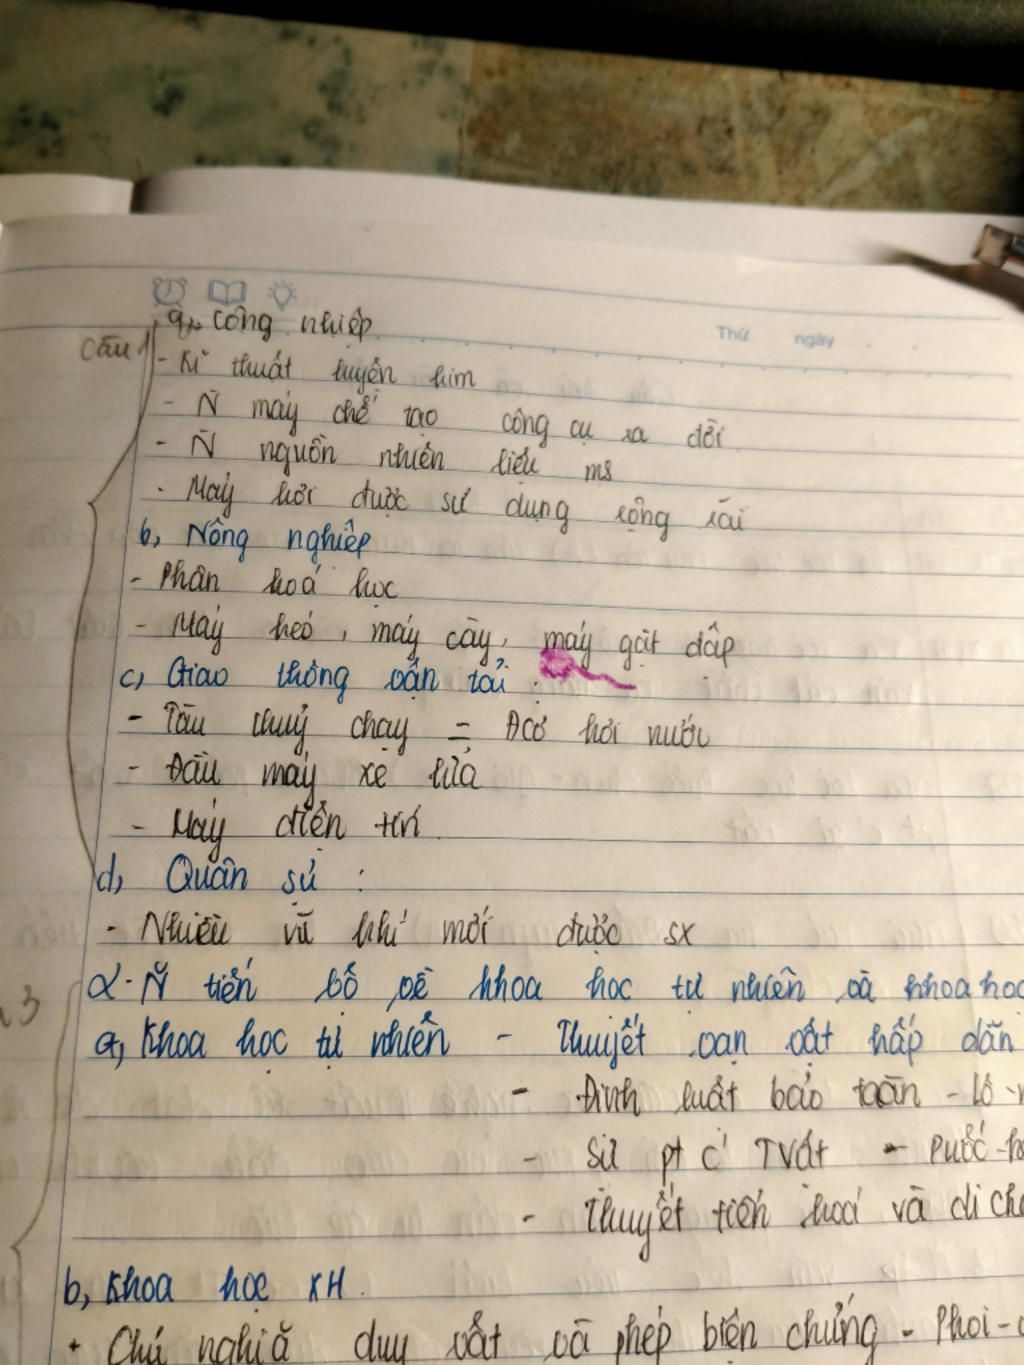 Thứ ngày
a, Công nghiệp
Câu 1
- Kĩ thuật luyện kim
- N̄ máy chế tạo công cụ ra đời
- N̄ nguồn nhiên liệu ms
- Máy hơi được sử dụng rộng rãi
b, Nông nghiệp
- Phân hoá học
- Máy kéo, máy cày, máy gặt đập
c, Giao thông vận tải :
- Tàu thuỷ chạy = Đcơ hơi nước
- Đầu máy xe lửa
- Máy điện tín
d, Quân sự :
- Nhiều vũ khí mới được sx
2. N̄ tiến bộ về khoa học tự nhiên và khoa học
3
a, Khoa học tự nhiên - Thuyết vạn vật hấp dẫn
- Định luật bảo toàn - Lô-
- Sự pt c' TVật - Puốc-
- Thuyết tiến hoá và di
b, Khoa học XH
+ Chủ nghĩa duy vật và phép biện chứng - Phoi-